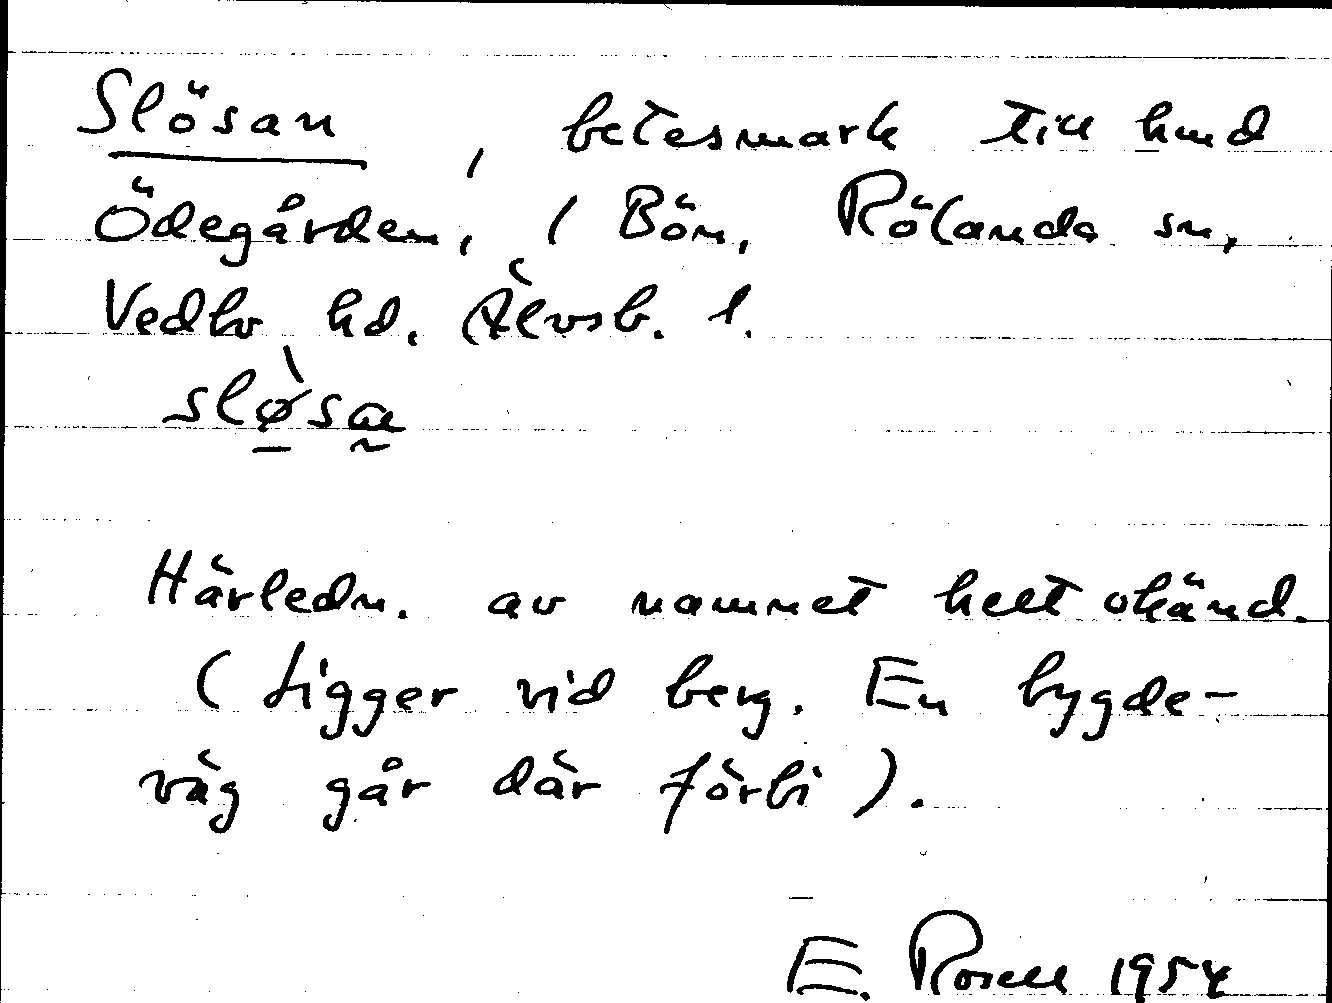 Slösan, betesmark till hmd
Ödegården, i Bön, Rölanda sn,
Vedbo hd. Älvsb. l.
slø̀sa
Härledn. av namnet helt okänd.
(Ligger vid berg. En bygde-
väg går där förbi).
E. Rosell 1954